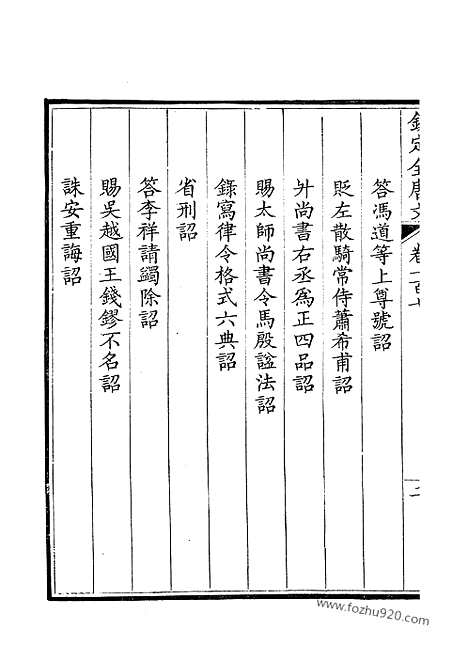 欽定全唐文 卷一百七 二
答馮道等上尊號詔
貶左散騎常侍蕭希甫詔
升尚書右丞爲正四品詔
賜太師尚書令馬殷諡法詔
錄寫律令格式六典詔
省刑詔
答李祥請蠲除詔
賜吳越國王錢鏐不名詔
誅安重誨詔
www.fozhu920.com